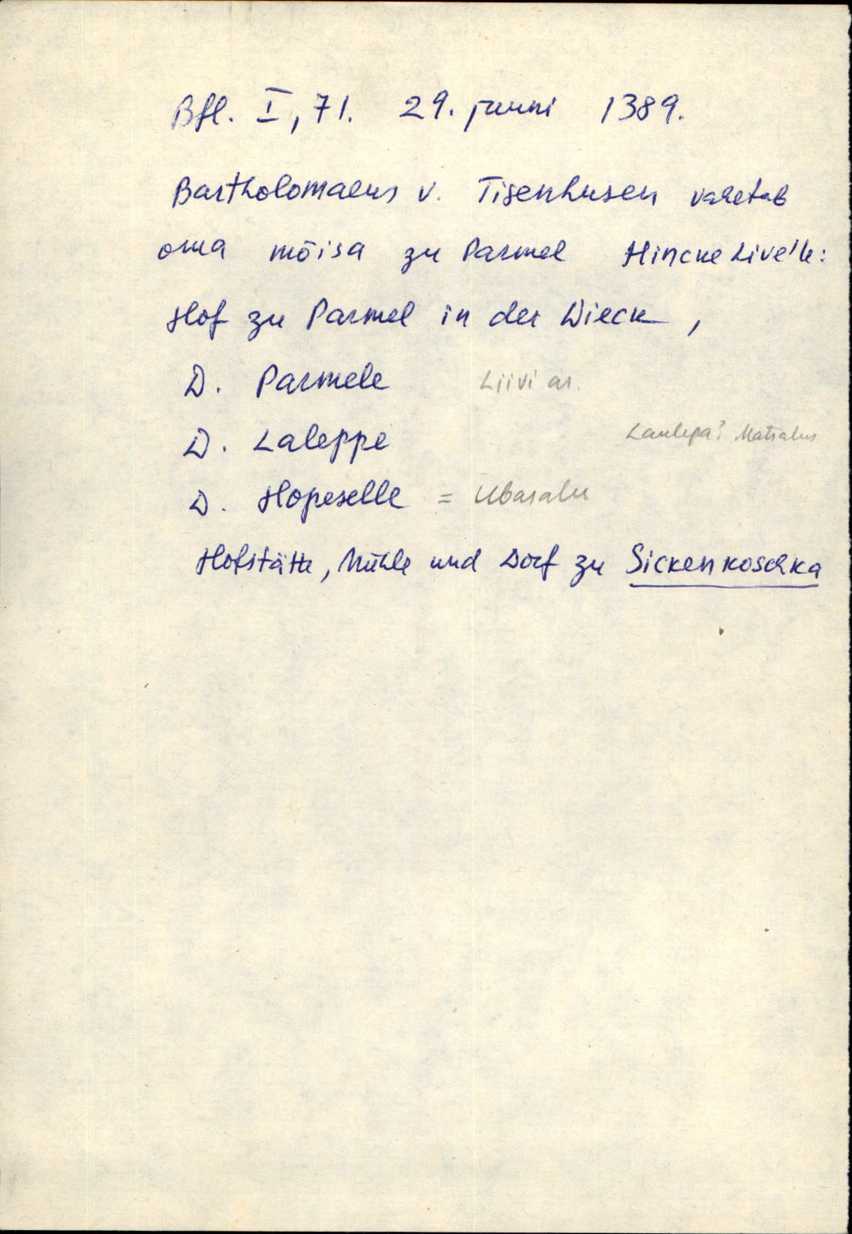 Bfl. I, 71. 29. juuni 1389.
Bartholomaeus v. Tisenhusen vahetab
oma mõisa zu Parmel Hincke Live'le:
Hof zu Parmel in der Wieck,
D. Parmele Liivi as.
D. Laleppe Laulepa? Matsalus
D. Hopeselle = Ubasalu
Hofstätte, Mühle und Dorf zu Sickenkoschka